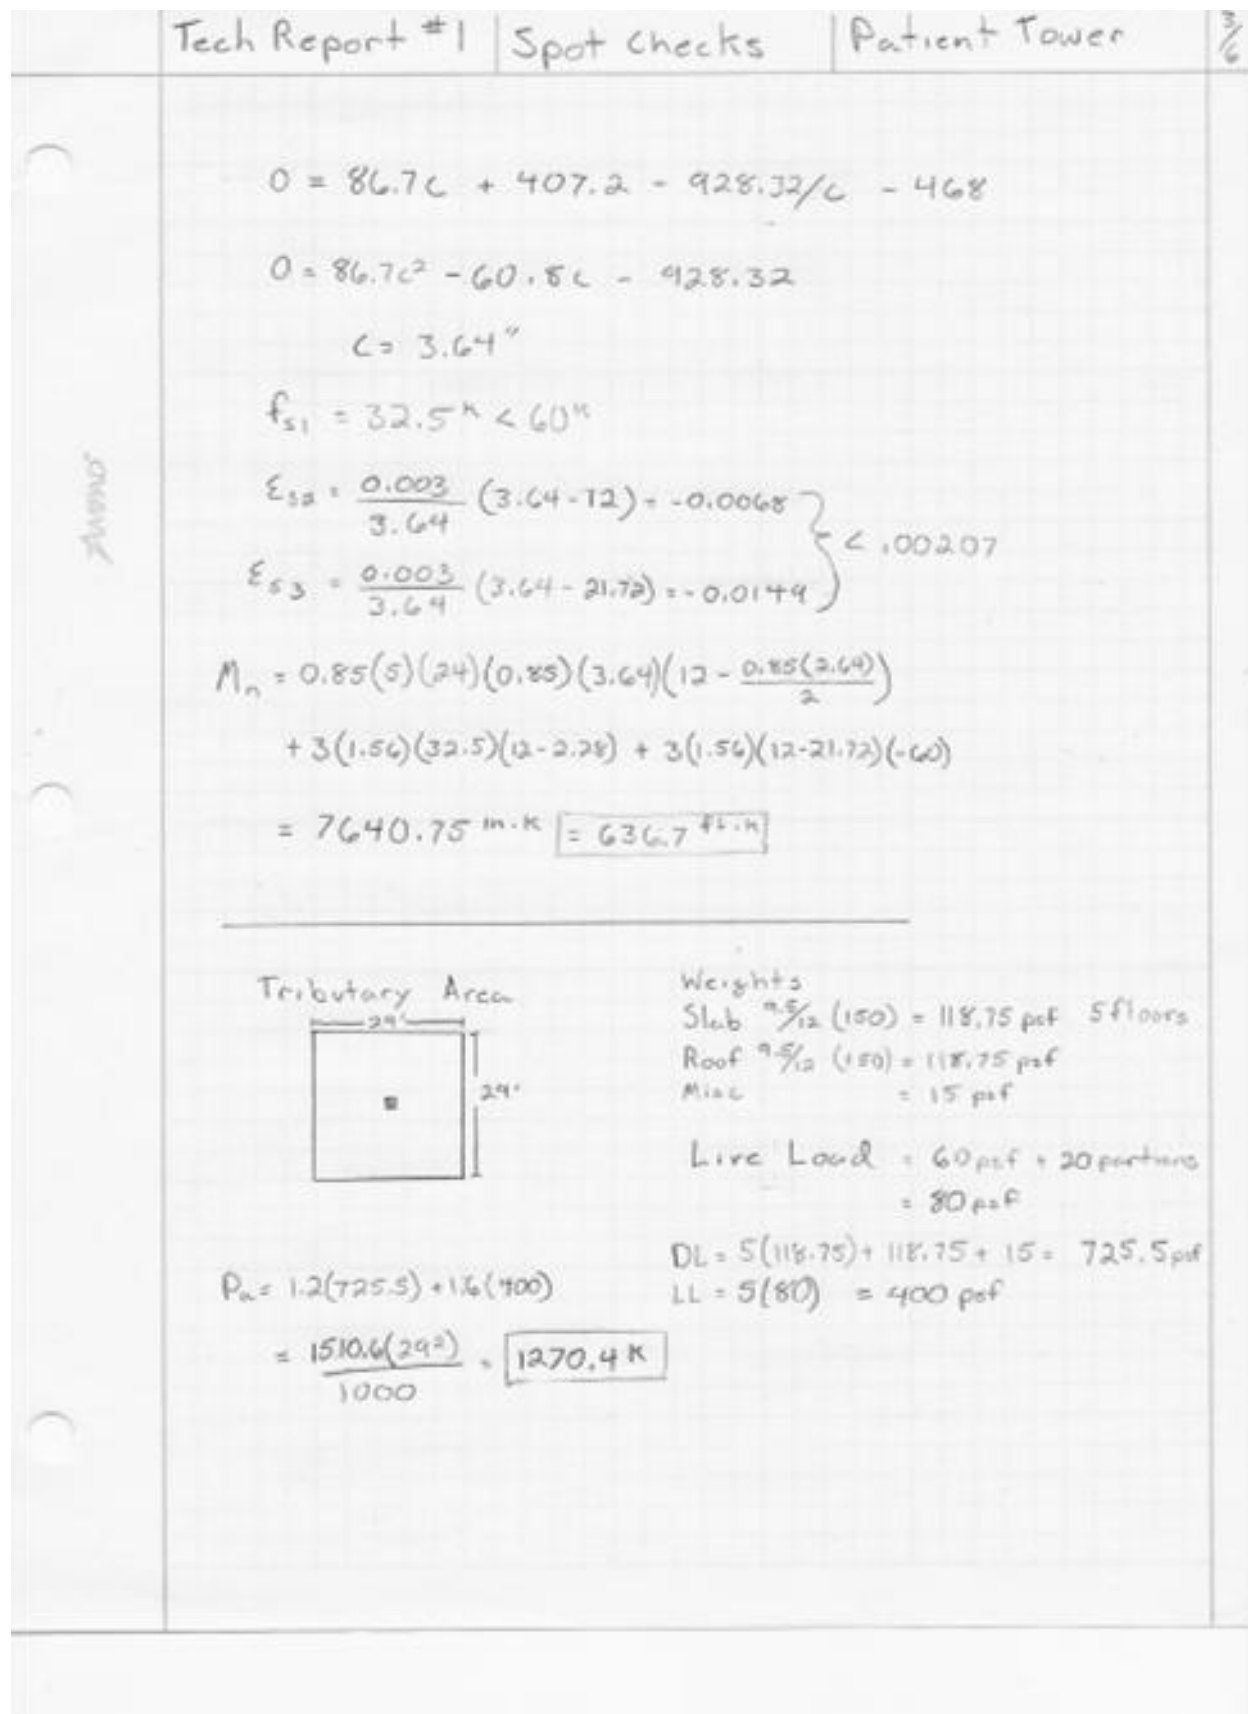 Tech Report #1 | Spot Checks | Patient Tower 3/6
0 = 86.7c + 407.2 - 928.32/c - 468
0 = 86.7c² - 60.8c - 928.32
c = 3.64"
fs1 = 32.5ᵏ < 60ᵏ
εs2 = 0.003/3.64 (3.64-12) = -0.0068
< .00207
εs3 = 0.003/3.64 (3.64-21.72) = -0.0149
Mn = 0.85(5)(24)(0.85)(3.64)(12 - 0.85(3.64)/2)
+ 3(1.56)(32.5)(12-2.28) + 3(1.56)(12-21.72)(-60)
= 7640.75 in·k = 636.7 ft·k
Tributary Area
29'
29'
Weights
Slab 9.5/12 (150) = 118.75 psf 5 floors
Roof 9.5/12 (150) = 118.75 psf
Misc = 15 psf
Live Load = 60 psf + 20 partions
= 80 psf
DL = 5(118.75) + 118.75 + 15 = 725.5 psf
LL = 5(80) = 400 psf
Pu = 1.2(725.5) + 1.6(400)
= 1510.6(29²)/1000 = 1270.4 K